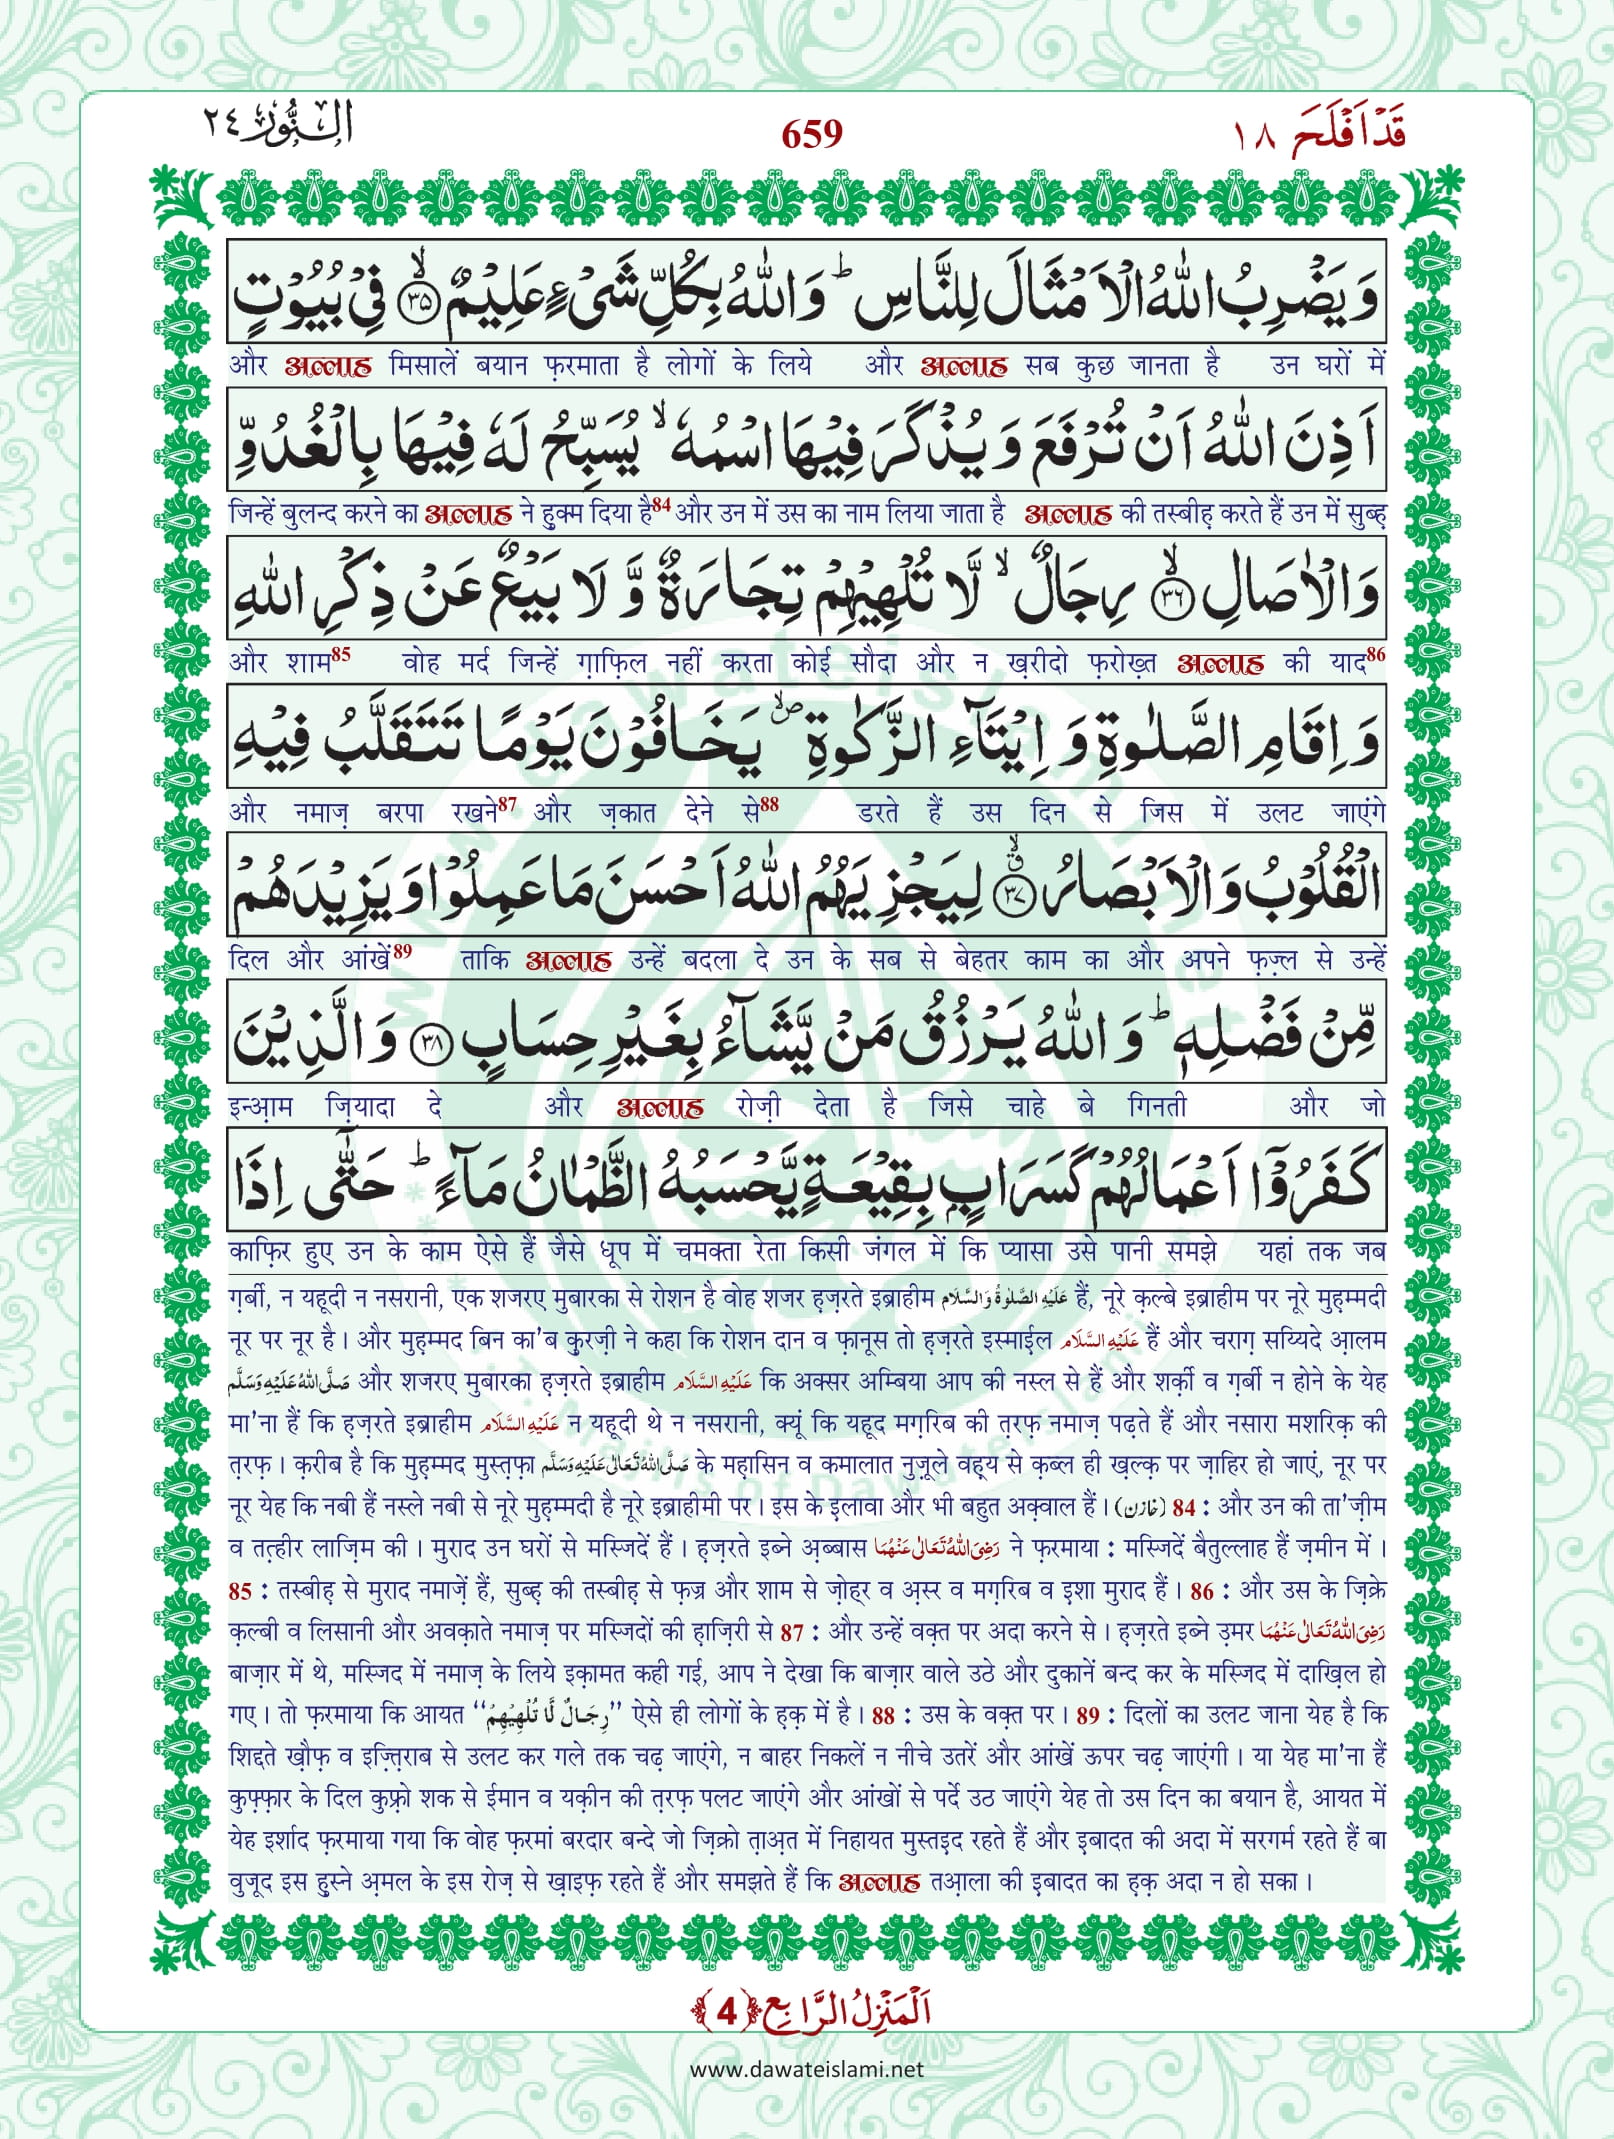 اَلنُّوْر ٢٤
659
قَدْ اَفْلَحَ ١٨
وَ یَضْرِبُ اللّٰهُ الْاَمْثَالَ لِلنَّاسِ ؕ وَ اللّٰهُ بِكُلِّ شَیْءٍ عَلِیْمٌ ۙ﴿۳۵﴾ فِیْ بُیُوْتٍ
और अल्लाह मिसालें बयान फ़रमाता है लोगों के लिये और अल्लाह सब कुछ जानता है उन घरों में
اَذِنَ اللّٰهُ اَنْ تُرْفَعَ وَ یُذْكَرَ فِیْهَا اسْمُهٗ ۙ یُسَبِّحُ لَهٗ فِیْهَا بِالْغُدُوِّ
जिन्हें बुलन्द करने का अल्लाह ने हुक्म दिया है84 और उन में उस का नाम लिया जाता है अल्लाह की तस्बीह़ करते हैं उन में सुब्ह़
وَ الْاٰصَالِ ۙ﴿۳۶﴾ رِجَالٌ ۙ لَّا تُلْهِیْهِمْ تِجَارَةٌ وَّ لَا بَیْعٌ عَنْ ذِكْرِ اللّٰهِ
और शाम85 वोह मर्द जिन्हें ग़ाफ़िल नहीं करता कोई सौदा और न ख़रीदो फ़रोख़्त अल्लाह की याद86
وَ اِقَامِ الصَّلٰوةِ وَ اِیْتَآءِ الزَّكٰوةِ ۪ۙ یَخَافُوْنَ یَوْمًا تَتَقَلَّبُ فِیْهِ
और नमाज़ बरपा रखने87 और ज़कात देने से88 डरते हैं उस दिन से जिस में उलट जाएंगे
الْقُلُوْبُ وَ الْاَبْصَارُ ۗۙ﴿۳۷﴾ لِیَجْزِیَهُمُ اللّٰهُ اَحْسَنَ مَا عَمِلُوْا وَ یَزِیْدَهُمْ
दिल और आंखें89 ताकि अल्लाह उन्हें बदला दे उन के सब से बेहतर काम का और अपने फ़ज़्ल से उन्हें
مِّنْ فَضْلِهٖ ؕ وَ اللّٰهُ یَرْزُقُ مَنْ یَّشَآءُ بِغَیْرِ حِسَابٍ ﴿۳۸﴾ وَ الَّذِیْنَ
इन्आ़म ज़ियादा दे और अल्लाह रोज़ी देता है जिसे चाहे बे गिनती और जो
كَفَرُوْۤا اَعْمَالُهُمْ كَسَرَابٍۭ بِقِیْعَةٍ یَّحْسَبُهُ الظَّمْاٰنُ مَآءً ؕ حَتّٰۤى اِذَا
काफ़िर हुए उन के काम ऐसे हैं जैसे धूप में चमक्ता रेता किसी जंगल में कि प्यासा उसे पानी समझे यहां तक जब
ग़र्बी, न यहूदी न नसरानी, एक शजरए मुबारका से रोशन है वोह शजर ह़ज़रते इब्राहीम عَلَیْہِ الصَّلٰوۃُ وَالسَّلَام हैं, नूरे क़ल्बे इब्राहीम पर नूरे मुह़म्मदी
नूर पर नूर है। और मुह़म्मद बिन का'ब कुरज़ी ने कहा कि रोशन दान व फ़ानूस तो ह़ज़रते इस्माईल عَلَیْہِ السَّلَام हैं और चराग़ सय्यिदे आ़लम
صَلَّی اللہُ عَلَیْہِ وَسَلَّم और शजरए मुबारका ह़ज़रते इब्राहीम عَلَیْہِ السَّلَام कि अक्सर अम्बिया आप की नस्ल से हैं और शर्क़ी व ग़र्बी न होने के येह
मा'ना हैं कि ह़ज़रते इब्राहीम عَلَیْہِ السَّلَام न यहूदी थे न नसरानी, क्यूं कि यहूद मग़रिब की त़रफ़ नमाज़ पढ़ते हैं और नसारा मशरिक़ की
त़रफ़। क़रीब है कि मुह़म्मद मुस्त़फ़ा صَلَّی اللہُ تَعَالٰی عَلَیْہِ وَسَلَّم के मह़ासिन व कमालात नुज़ूले वह़्य से क़ब्ल ही ख़ल्क़ पर ज़ाहिर हो जाएं, नूर पर
नूर येह कि नबी हैं नस्ले नबी से नूरे मुह़म्मदी है नूरे इब्राहीमी पर। इस के इ़लावा और भी बहुत अक़्वाल हैं। (خازن) 84 : और उन की ता'ज़ीम
व तत़्हीर लाज़िम की। मुराद उन घरों से मस्जिदें हैं। ह़ज़रते इब्ने अ़ब्बास رَضِیَ اللہُ تَعَالٰی عَنْہُمَا ने फ़रमाया : मस्जिदें बैतुल्लाह हैं ज़मीन में।
85 : तस्बीह़ से मुराद नमाज़ें हैं, सुब्ह़ की तस्बीह़ से फ़ज्र और शाम से ज़ोहर व अ़स्र व मग़रिब व इशा मुराद हैं। 86 : और उस के ज़िक्रे
क़ल्बी व लिसानी और अवक़ाते नमाज़ पर मस्जिदों की ह़ाज़िरी से 87 : और उन्हें वक़्त पर अदा करने से। ह़ज़रते इब्ने उ़मर رَضِیَ اللہُ تَعَالٰی عَنْہُمَا
बाज़ार में थे, मस्जिद में नमाज़ के लिये इक़ामत कही गई, आप ने देखा कि बाज़ार वाले उठे और दुकानें बन्द कर के मस्जिद में दाख़िल हो
गए। तो फ़रमाया कि आयत ‘‘رِجَالٌ لَّا تُلْهِیْهِمْ’’ ऐसे ही लोगों के ह़क़ में है। 88 : उस के वक़्त पर। 89 : दिलों का उलट जाना येह है कि
शिद्दते ख़ौफ़ व इज़्त़िराब से उलट कर गले तक चढ़ जाएंगे, न बाहर निकलें न नीचे उतरें और आंखें ऊपर चढ़ जाएंगी। या येह मा'ना हैं
कुफ़्फ़ार के दिल कुफ़्रो शक से ईमान व यक़ीन की त़रफ़ पलट जाएंगे और आंखों से पर्दे उठ जाएंगे येह तो उस दिन का बयान है, आयत में
येह इर्शाद फ़रमाया गया कि वोह फ़रमां बरदार बन्दे जो ज़िक्रो त़ाअ़त में निहायत मुस्तइ़द रहते हैं और इ़बादत की अदा में सरगर्म रहते हैं बा
वुजूद इस हुस्ने अ़मल के इस रोज़ से ख़ाइफ़ रहते हैं और समझते हैं कि अल्लाह तआ़ला की इ़बादत का ह़क़ अदा न हो सका।
اَلْمَنْزِلُ الرَّابِع ﴿4﴾
www.dawateislami.net